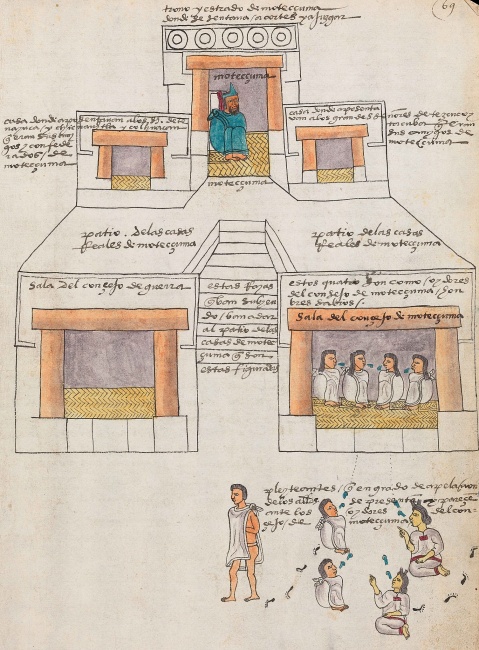 69
trono y estrado de motecçuma
donde se sentava a cortes y a juzgar
motecçuma
casa donde aposentavan a los señores de te
nayuca / y chicnauhtla y colhuacan
que eran sus ami
gos / y confede
rados / de
motecçuma
casa donde aposenta
van a los grandes señores de tezcuco y
tacuba
sus amigos de
motecçuma
motecçuma
patio. de las casas
Reales de motecçuma
patio de las casas
Reales de motecçuma
sala del conçejo de guerra
estas Rayas
que van suby en
do / van a dar
al patio de las
casas de motec
çuma que son
estas figuradas
estos quatro son como / oydores
del consejo de motecçuma / hon
bres sabios /.
Sala del conçejo de motecçuma
pleyteantes / que en grado de apelaçion
de los alldes. se presentan y pareçe
ante los oydores del con-
sejo / de motecçuma